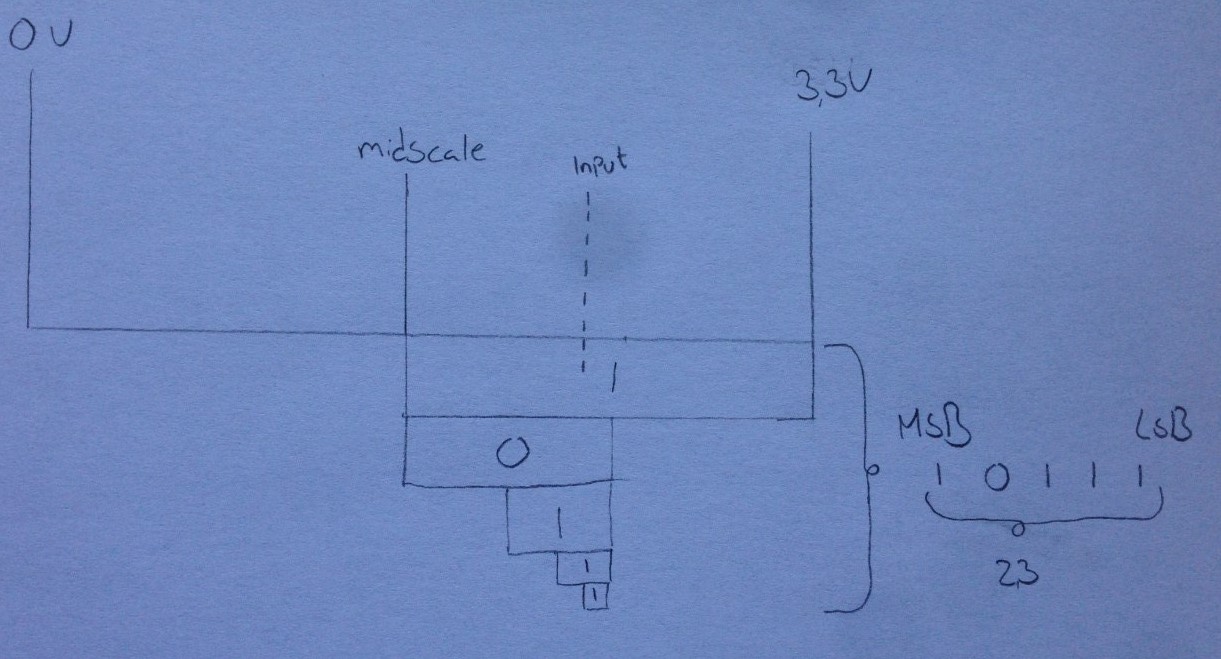 0 V
3,3V
midscale
Input
1
0
1
1
1
MSB LSB
1 0 1 1 1
23